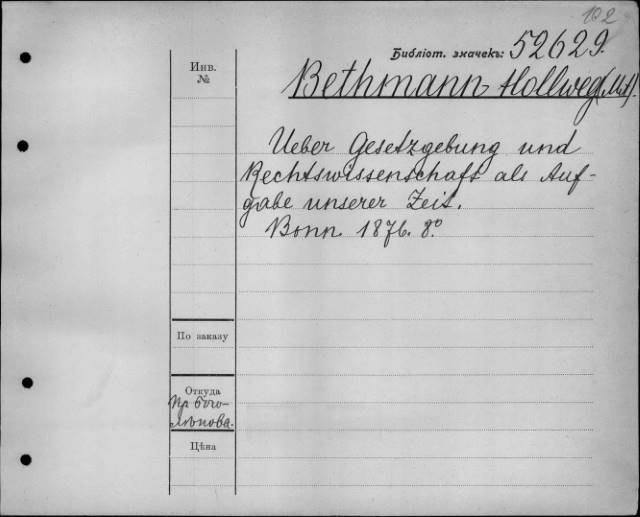 102
Библіот. значекъ: 52629.
Инв.
№
Bethmann-Hollweg
Ueber Gesetzgebung und
Rechtswissenschaft als Auf-
gabe unserer Zeit.
Bonn 1876. 8º
По заказу
Откуда
Пр. Бого-
лѣпова.
Цѣна